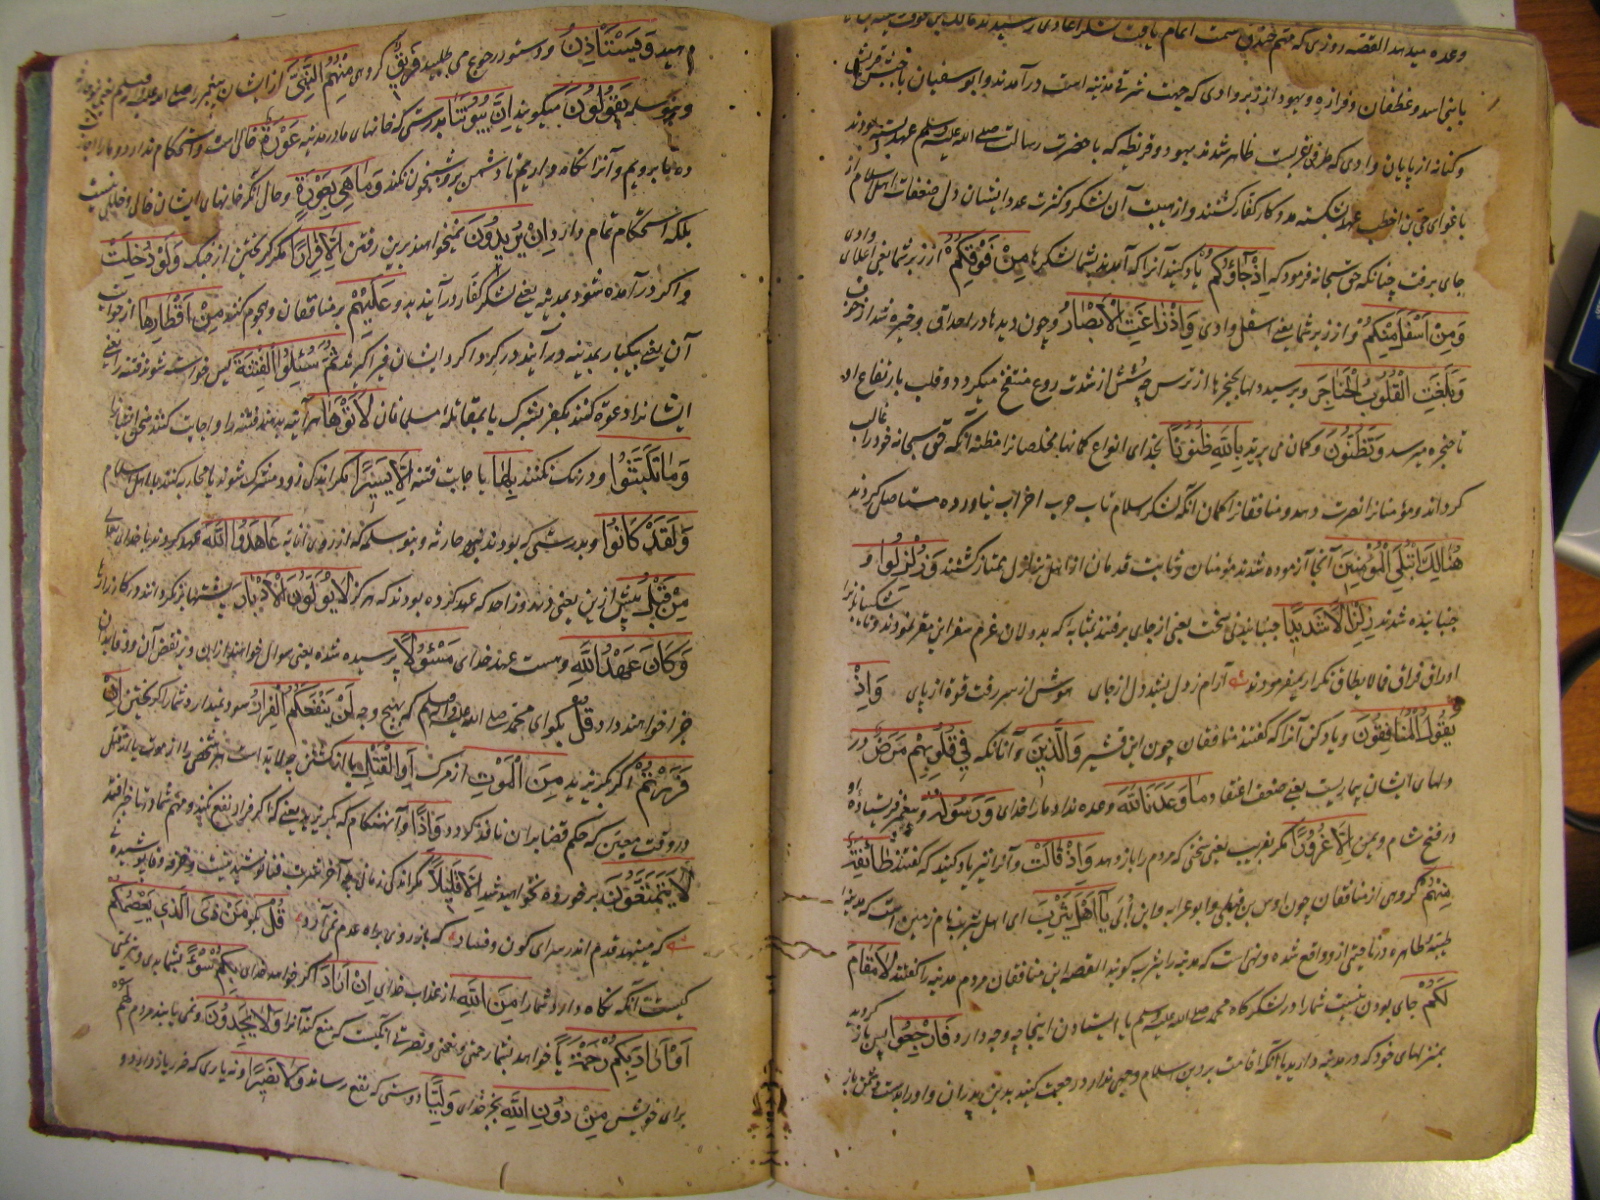 وعده میدهد القصه روزی که مهم خندق سمت اتمام یافت لشکر اعادی رسیدند
با بنی اسد و غطفان و فزاره و یهود از زبر وادی که جهت شرقی مدینه است درآمدند و ابو سفیان با قریش
و کنانه از پایان وادی که طرف غربیست ظاهر شدند یهود و قریظه که با حضرت رسالت صلی الله علیه وسلم عهد بسته بودند
باغوای حی بن اخطب عهد شکسته مدد کار کفار گشتند و از هیبت آن لشکر و کثرت عدد ایشان دل ضعفای اهل اسلام از
جای برفت چنانکه حق سبحانه فرمود که اِذْ جَاؤُكُمْ یاد کنید آنرا که آمدند بشما لشکرها مِنْ فَوْقِكُمْ از زبر شما یعنی اعلای وادی
وَمِنْ اَسْفَلَ مِنْكُمْ و از زیر شما یعنی اسفل وادی وَاِذْ زَاغَتِ الْاَبْصَارُ و چون دیدها در احداق و خیره شد از خوف
وَبَلَغَتِ الْقُلُوْبُ الْحَنَاجِرَ و برسید دلها بحنجرها از ترس چه شش از شدت روع منتفخ میگردد و قلب بارتفاع او
تا حنجره میرسد وَتَظُنُّوْنَ و گمان می برید بِاللهِ الظُّنُوْنَا بخدای انواع گمانها مخلصانرا مظنه آنکه حق سبحانه خود را غالب
گرداند و مؤمنانرا نصرت دهد و منافقانرا گمان آنکه لشکر اسلام تاب حرب احزاب نیاورده مستاصل گردند
هُنَالِكَ ابْتُلِيَ الْمُؤْمِنُيْنَ آنجا آزموده شدند مؤمنان و ثابت قدمان از اهل تزلزل ممتاز گشتند وَزُلْزِلُوْا و
جنبانیده شدند زِلْزَالًا شَدِيْدًا جنبانیدنی سخت یعنی از جای برفتند بمثابه که بددلان عزم سفر
اوراق فراق فالا یطاق تکرار میفرمودند آرام ز دل بشد دل از جای هوش از سر رفت قوة از پای وَاِذْ
يَقُوْلُ الْمُنَافِقُوْنَ و یاد کن آنرا که گفتند منافقان چون ابن قشیر وَالَّذِيْنَ و آنانکه فِيْ قُلُوْبِهِمْ مَرَضٌ در
دلهای ایشان بیماریست یعنی ضعف اعتقاد مَا وَعَدَنَا اللهُ وعده نداد ما را خدای وَرَسُوْلُهُ و پیغمبر فرستاده او
در فتح شام و یمن اِلَّا غُرُوْرًا مگر بفریب یعنی سخنی که مردم را بازی دهد وَاِذْ قَالَتْ و آنرا نیز یاد کنید که گفتند طَائِفَةٌ
مِنْهُمْ گروهی از منافقان چون اوس بن قیظی و ابو عرابه و ابن ابی يَا اَهْلَ يَثْرِبَ ای اهل یثرب نام زمین است که مدینه
طیبه طاهره در ناحیتی ازو واقع شده و نهی است که مدینه را یثرب گویند القصه این منافقان مردم مدینه را گفتند لَا مُقَامَ
لَكُمْ جای بودن نیست شما را در لشکرگاه محمد صلی الله علیه وسلم یا ایستادن اینجا چه وجه دارد فَارْجِعُوْا پس باز گردید
بمنزلهای خود که در مدینه دارید یا آنکه اقامت بر دین اسلام وجهی ندارد رجعت کنید بدین پدران
وَيَسْتَأْذِنُ و دستور رجوع می طلبید فَرِيْقٌ گروهی مِنْهُمُ النَّبِيَّ از ایشان پیغمبر را صلی الله علیه وسلم
و بنو سلمه يَقُوْلُوْنَ میگویند اِنَّ بُيُوْتَنَا بدرستی که خانهای ما در مدینه عَوْرَةٌ خالی است و استحکام ندارد
ده تا برویم و آنرا نگاه داریم تا دشمن برو شبیخون نکند وَمَا هِيَ بِعَوْرَةٍ و حال آنکه خانهای ایشان خالی و خللی نیست
بلکه استحکام تمام دارد اِنْ يُرِيْدُوْنَ نمیخواهند بدین رفتن اِلَّا فِرَارًا مگر گریختن از جنگ وَلَوْ دُخِلَتْ
و اگر درآمده شود بمدینه یعنی لشکر کفار درآیند بدو عَلَيْهِمْ بر منافقان و هجوم کنند مِنْ اَقْطَارِهَا از جوانب
آن یعنی بیکبار بمدینه درآیند و گرداگرد ایشان فرا گیرند ثُمَّ سُئِلُوا الْفِتْنَةَ پس خواسته شوند فتنه را یعنی
ایشانرا دعوة کنند بکفر و شرک یا بمقاتله مسلمانان لَاَتَوْهَا هر آینه بدهند فتنه را و اجابت کنند
وَمَا تَلَبَّثُوْا و درنگ نکنند بِهَا باجابت فتنه اِلَّا يَسِيْرًا مگر اندکی زود مشرک شوند یا محاربه کنند با اهل اسلام
وَلَقَدْ كَانُوْا و بدرستی که بودند بنو حارثه و بنو سلمه که از روی انابه عَاهَدُوا اللهَ عهد کردند با خدای تعالی
مِنْ قَبْلُ پیش ازین یعنی در روز احد که عهد کرده بودند که هرگز لَا يُوَلُّوْنَ الْاَدْبَارَ پشتها بر نگردانند در کارزارها
وَكَانَ عَهْدُ اللهِ و هست عهد خدای مَسْئُوْلًا پرسیده شده یعنی سوال خواهند از آن و بر نقض آن
جزا خواهند داد قُلْ بگو ای محمد صلی الله علیه وسلم که بهیچ وجه لَنْ يَنْفَعَكُمُ الْفِرَارُ سود نمیدارد شما را گریختن اِنْ
فَرَرْتُمْ اگر بگریزید مِنَ الْمَوْتِ از مرگ اَوِ الْقَتْلِ یا از کشتن چه لابد است هر شخصی را از موت یا از قتل
در وقت معین که حکم قضا بر آن نافذ گردد وَاِذًا و آنهنگام که بگریزید یعنی که اگر فرار نفع کند
لَا تُمَتَّعُوْنَ برخورده نخواهید شد اِلَّا قَلِيْلًا مگر اندکی زمانی
که مینهد قدم اندر سرای کون و فساد که باز روی براه عدم نمی آرد قُلْ بگو مَنْ ذَا الَّذِيْ يَعْصِمُكُمْ
کیست آنکه نگاه دارد شما را مِنَ اللهِ از عذاب خدای اِنْ اَرَادَ اگر خواهد خدای بِكُمْ سُوْءً بشما بدی
اَوْ اَرَادَ بِكُمْ رَحْمَةً یا خواهد بشما رحمتی و نصرتی آنکیست که منع کند آنرا وَلَا يَجِدُوْنَ و نمی یابند مردم لَهُمْ
برای خویش مِنْ دُوْنِ اللهِ بجز خدای وَلِيًّا دوستی که نفع رساند وَلَا نَصِيْرًا و نه یاری که ضرر باز دارد